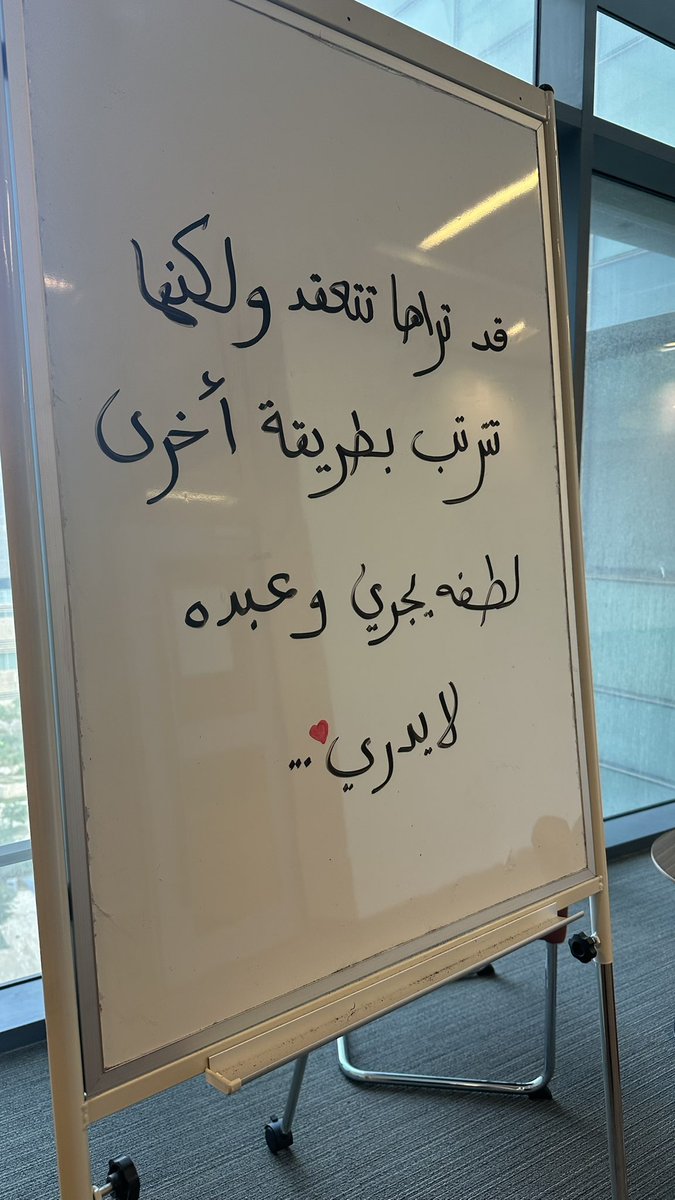 قد تراها تتعقد ولكنها
تترتب بطريقة أخرى
لطفه يجري وعبده
لا يدري...